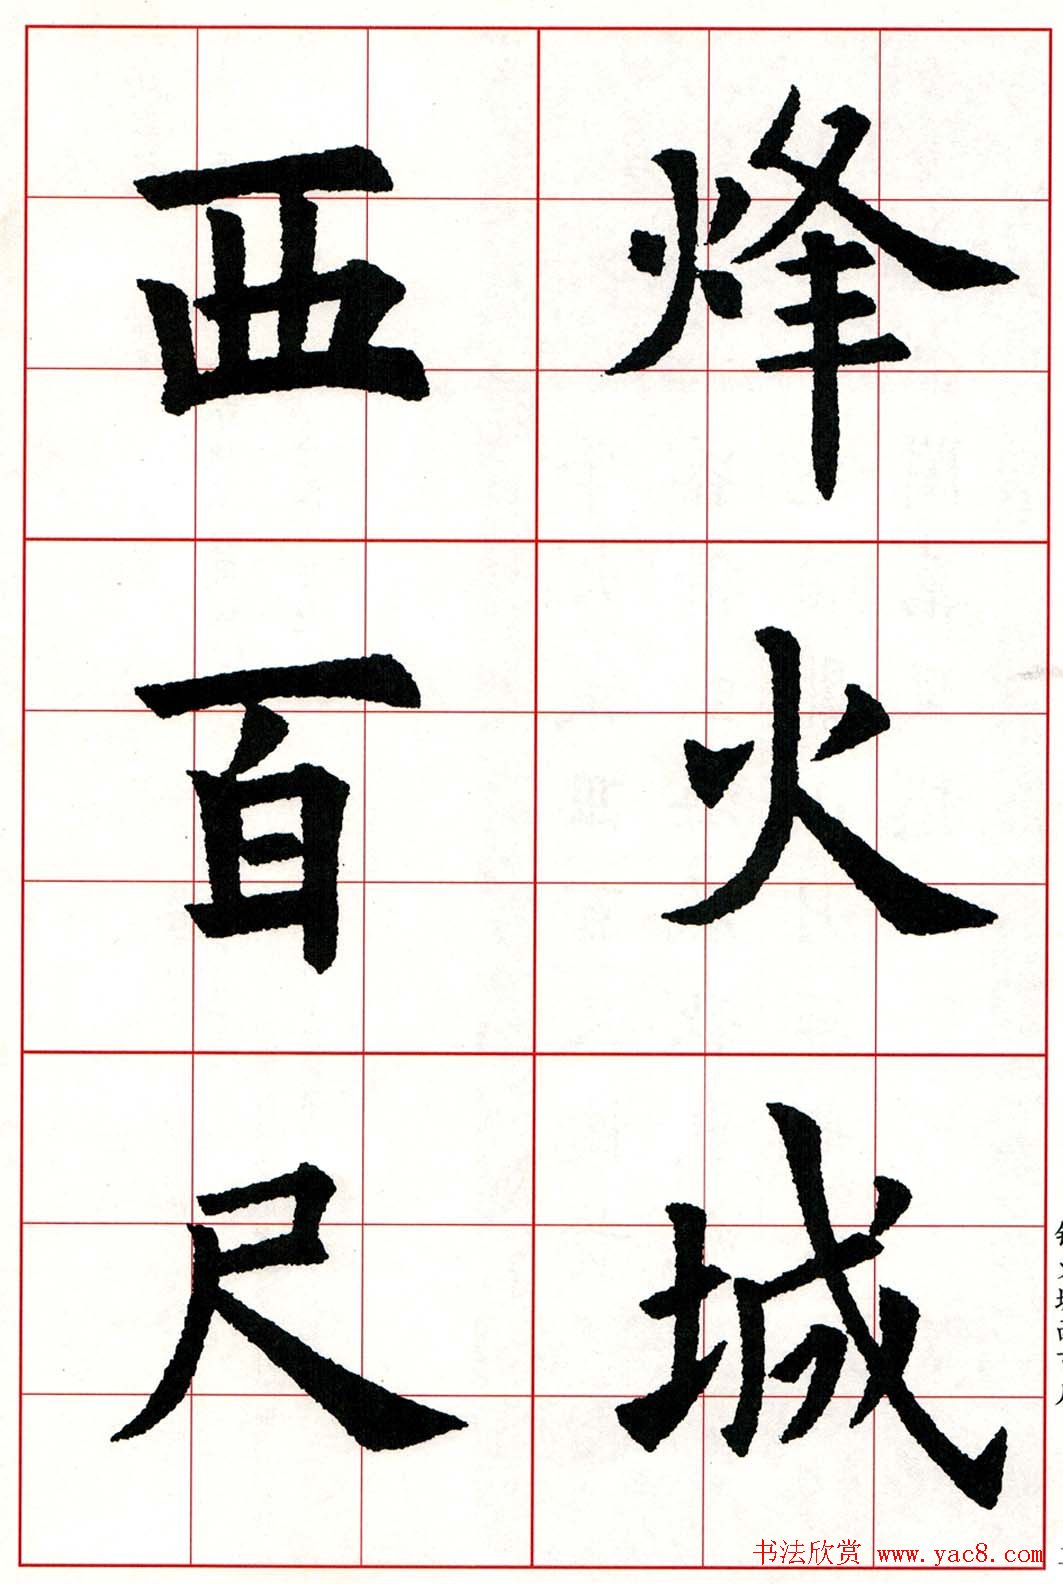 烽火城
西百尺
书法欣赏 www.yac8.com